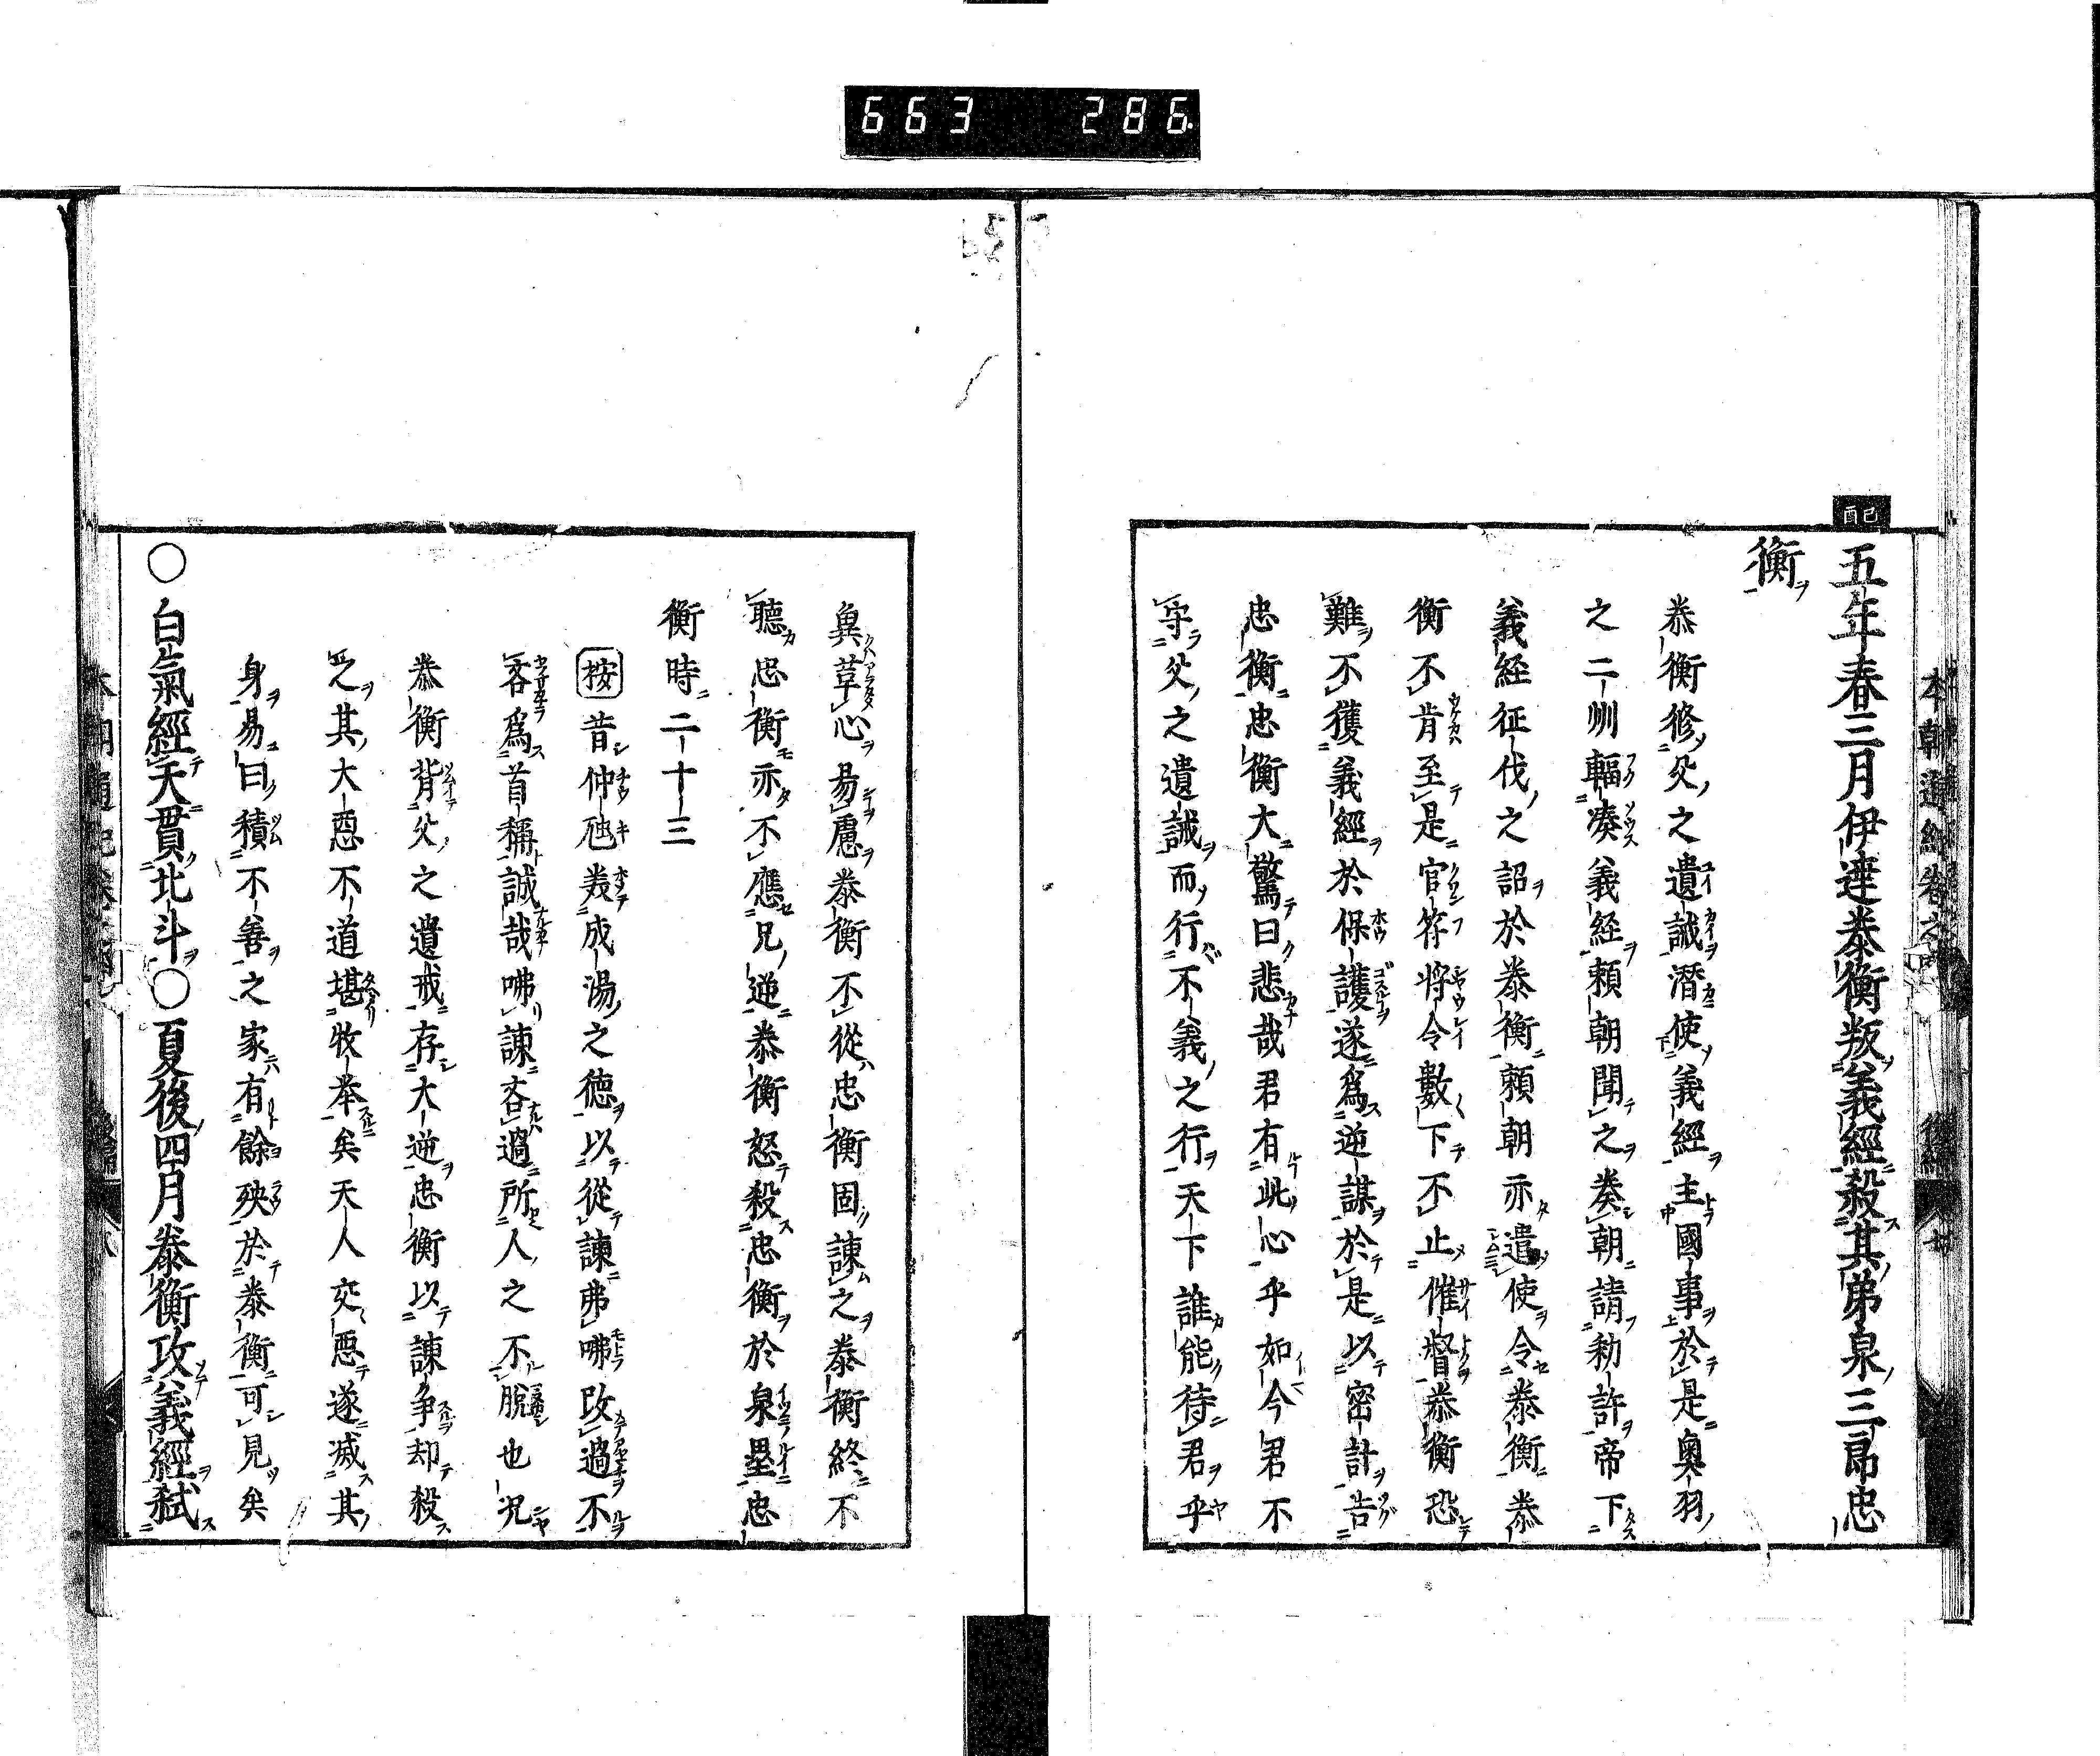 663 286
己酉
五年春三月伊達泰衡叛義經殺其弟泉三郎忠
衡
泰衡修父之遺誡潛使義經主國事於是奧羽
之二州輻湊義経頼朝聞之奏朝請勅許帝下
義経征伐之詔於泰衡頼朝亦遣使令泰衡泰
衡不肯至是官符将令數下不止催督泰衡恐
難不獲義經於保護遂爲逆謀於是以密計告
忠衡忠衡大驚曰悲哉君有此心乎如今君不
守父之遺誡而行不義之行天下誰能待君乎
兾草心易慮泰衡不從忠衡固諌之泰衡終不
聽忠衡亦不應兄逆泰衡怒殺忠衡於泉壘忠
衡時二十三
按昔仲虺羙成湯之徳以從諌弗咈改過不
吝爲首稱誠哉咈諌吝過所人之不脫也况
泰衡背父之遺戒存大逆忠衡以諌争却殺
之其大惡不道堪牧举矣天人交惡遂滅其
身易曰積不善之家有餘殃於泰衡可見矣
○白氣經天貫北斗○夏後四月泰衡攻義經弑